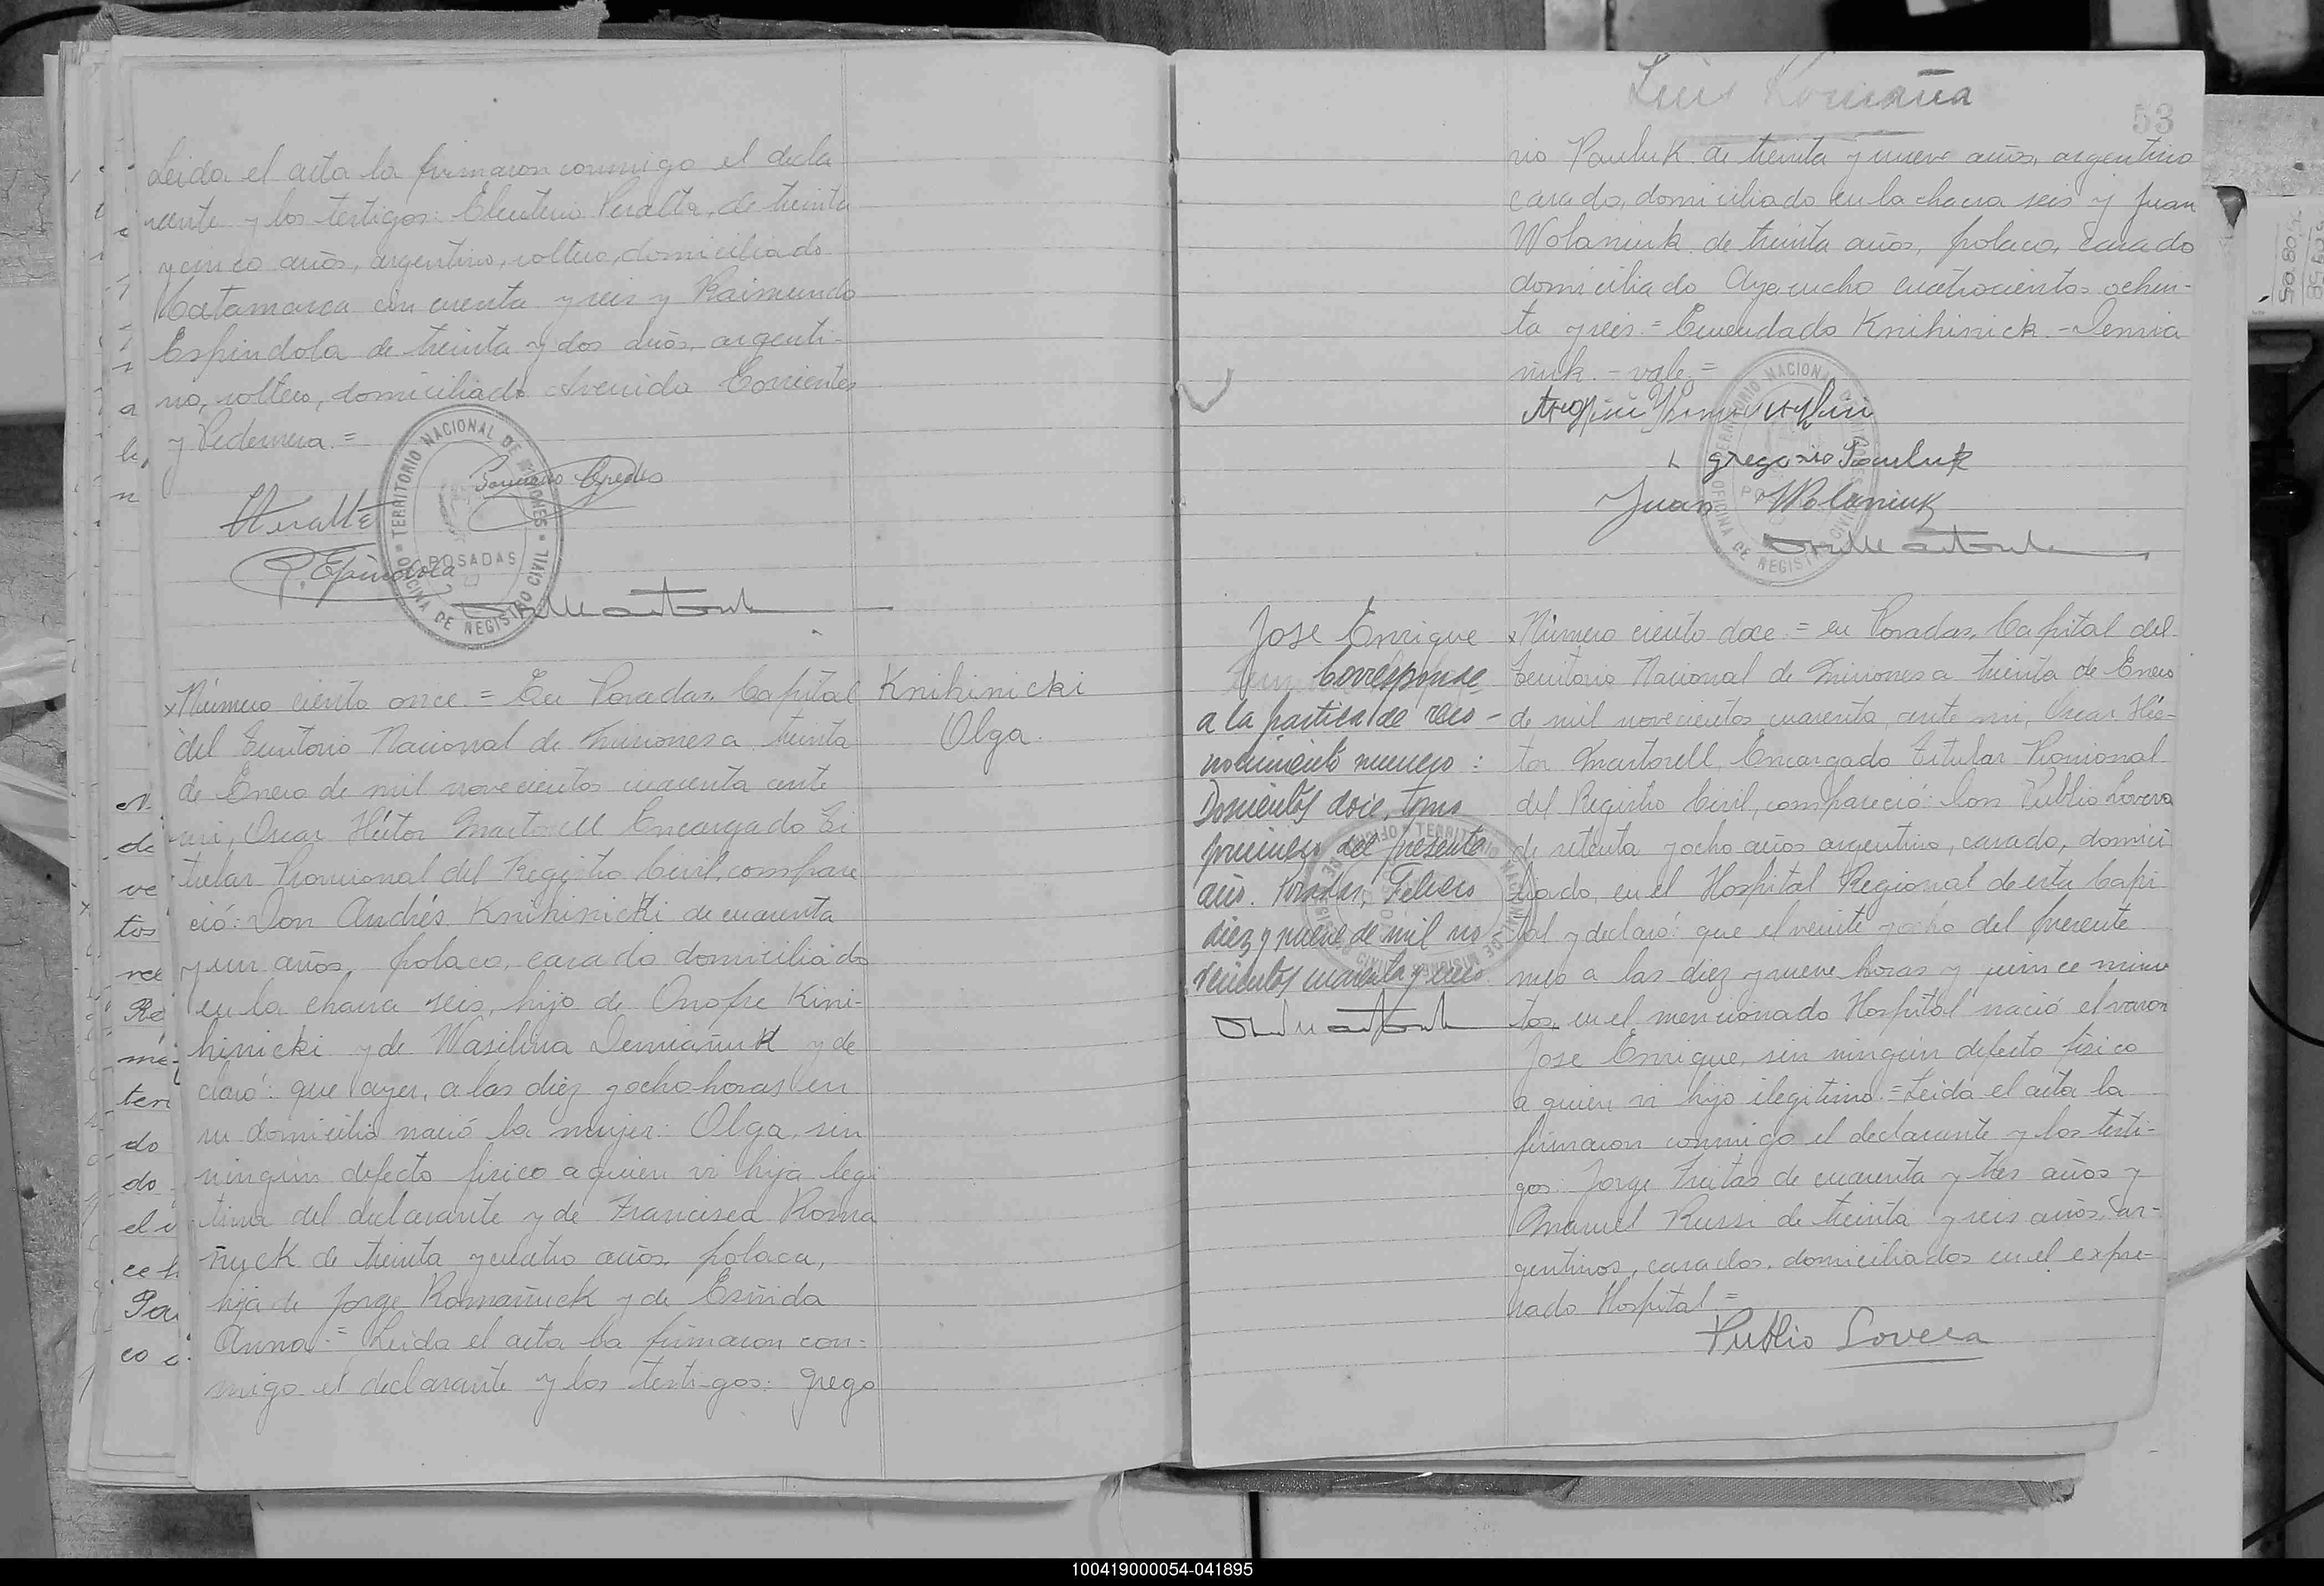 Leida el acta la firmaron conmigo el decla
rante y los testigos: Eleuterio Peralta, de treinta
y cinco años, argentino, soltero, domiciliado
Catamarca cincuenta y seis y Raimundo
Espindola de treinta y dos años, argenti-
no, soltero, domiciliado Avenida Corrientes
y Pedernera.=
TERRITORIO NACIONAL DE MISIONES
OFICINA DE REGISTRO CIVIL
POSADAS
EPeralta
R. Espindola
Número ciento once.= En Posadas, Capital
del Territorio Nacional de Misiones a treinta
de Enero de mil novecientos cuarenta ante
mi, Oscar Héctor Martorell Encargado Ti
tular Provisional del Registro Civil, compare
ció: Don Andrés Knihinicki de cuarenta
y un años, polaco, casado domiciliado
en la chacra seis, hijo de Onofre Kini-
hinicki y de Wasilina Demiañuk y de
claró: que ayer, a las diez y ocho horas en
su domicilio nació la mujer: Olga, sin
ningún defecto fisico a quien vi hija legi
tima del declarante y de Francisca Roma
ñuck de treinta y cuatro años, polaca,
hija de Jorge Romañuck y de Esñida
Anna.= Leida el acta la firmaron con-
migo el declarante y los testigos: Grego
Knihinicki
Olga.
Luis Romaña
53
rio Pauluk de treinta y nueve años, argentino
casado, domiciliado en la chacra seis y Juan
Wolaniuk de treinta años, polaco, casado
domiciliado Ayacucho cuatrocientos ochen-
ta y seis.= Enmendado Knihinick - Demia
niuk. - vale.=
Gregorio Pauluk
Juan Wolaniuk
Jose Enrique
Corresponde
a la partida de reco-
nocimiento numero:
Doscientos doce, tomo
primero del presente
año. Posadas, Febrero
diez y nueve de mil no
vecientos cuarenta y cinco
Número ciento doce.= en Posadas, Capital del
Territorio Nacional de Misiones a treinta de Enero
de mil novecientos cuarenta, ante mi, Oscar Héc-
tor Martorell, Encargado Titular Provisional
del Registro Civil, compareció: Don Publio Lovera
de setenta y ocho años argentino, casado, domici
liado, en el Hospital Regional de esta Capi
tal y declaró: que el veinte y ocho del presente
mes a las diez y nueve horas y quince minu
tos, en el mencionado Hospital nació el varon
Jose Enrique, sin ningún defecto fisico
a quien vi hijo ilegitimo.= Leida el acta la
firmaron conmigo el declarante y los testi-
gos: Jorge Freitas de cuarenta y tres años y
Manuel Russi de treinta y seis años, ar-
gentinos, casados, domiciliados en el expre-
sado Hospital.=
Publio Lovera
100419000054-041895